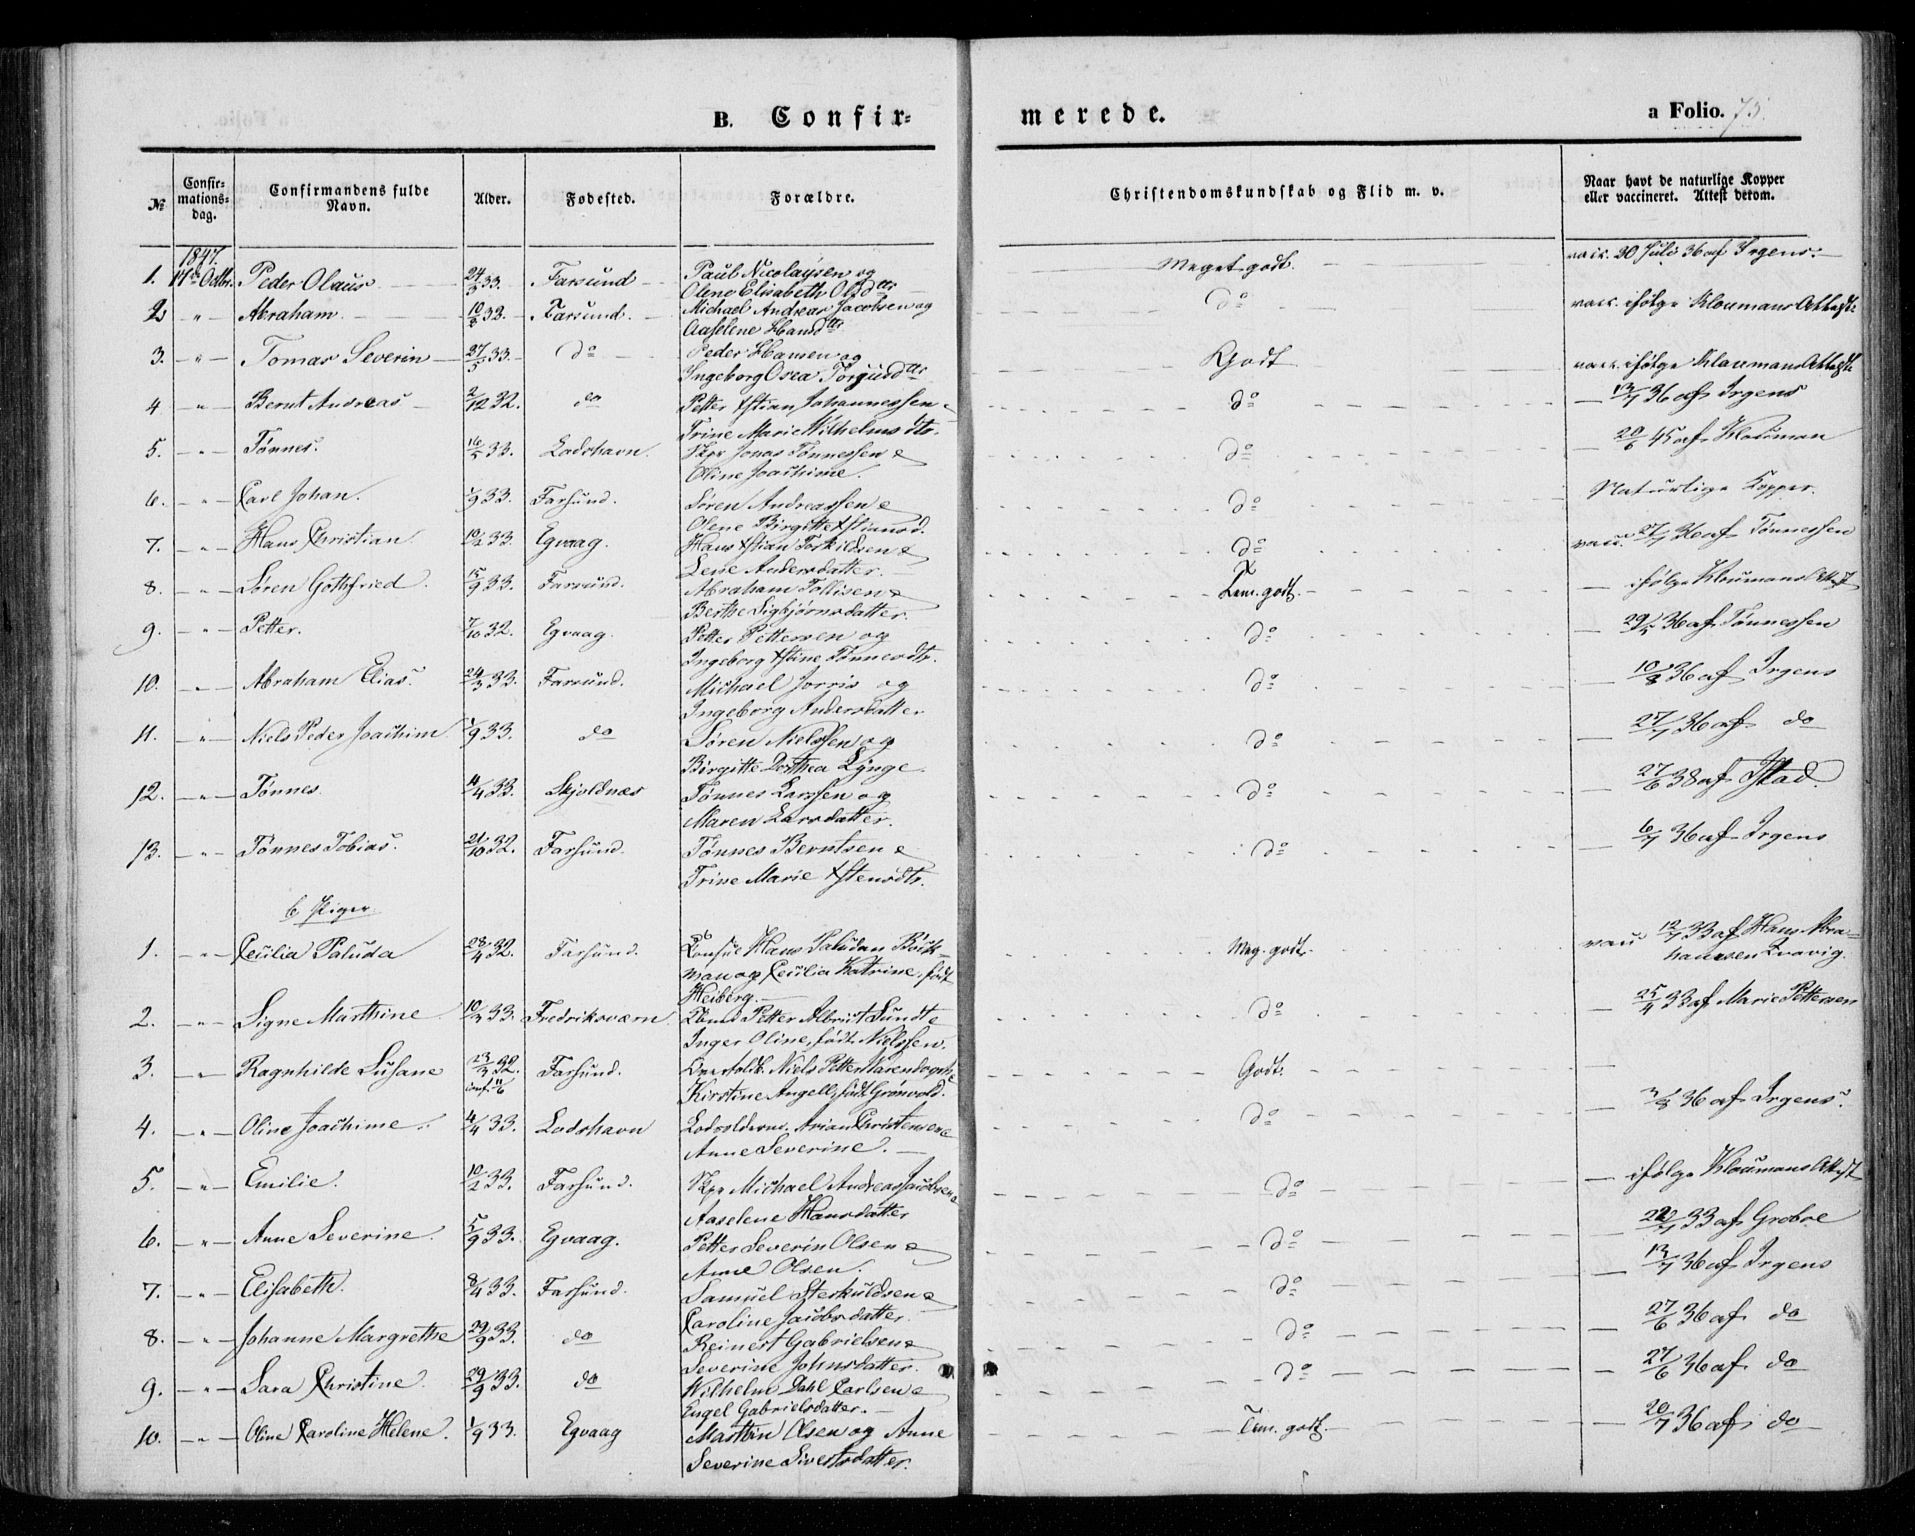 B. Confir=
merede.
a Folio. 75.
№
Confir-
mations-
dag.
Confirmandens fulde
Navn.
Alder.
Fødested.
Forældre.
Christendomskundskab og Flid m. v.
Naar havt de naturlige Kopper
eller vaccineret. Attest derom.
1847.
1. 17de Octbr. Peder Olaus 24/3 33. Farsund Paul Nicolaysen og Meget godt. vacc. 20 Juli 36 af Irgens.
Olene Elisabeth Olsdttr
2 " Abraham 10/8 32. Farsund. Michael Andreas Jacobsen og do vacc. ifølge Kloumans Attest
Aaselene Hansdttr
3. " Tomas Severin 27/5 33. do Peder Hansen og Godt vacc. ifølge Kloumans Attest
Ingeborg Osea Torgusdttr
4 " Bernt Andreas 2/12 32. do Petter Xstian Johannessen & do 13/7 36 af Irgens
Trine Marie Wilhelmsdtr.
5. " Tønnes. 16/5 33. Lodshavn. Skpr Jonas Tønnessen & do 20/6 45 af Klouman
Oline Joachime.
6. " Carl Johan. 1/9 33. Farsund. Søren Andreassen & do Naturlige Kopper.
Olene Birgitte Xstiansd.
7. " Hans Christian 10/2 33. Egvaag. Hans Xstian Torkildsen & do vacc. 27/7 36 af Tønnessen
Lene Andersdatter.
8. " Søren Gothfried. 15/9 33. Farsund. Abraham Tollisen & Tem. godt. ifølge Kloumans Attest
Berthe Sigbjørnsdatter.
9. " Petter. 7/10 32. Egvaag. Petter Pettersen og do 29/5 36 af Tønnessen
Ingeborg Xstine Tønnesdtr.
10. " Abraham Elias. 24/3 33. Farsund. Michael Jorris og do 10/8 36 af Irgens
Ingeborg Andersdatter
11. " Niels Peder Joachim 1/9 33. do Søren Nielssen og do 27/7 36 af do
Birgitte Dorthea Lynge.
12. " Tønnes. 11/4 33. Skjoldnæs Tønnes Larssen og do 27/6 38 af Istad.
Maren Larsdatter.
13. " Tønnes Tobias. 21/10 32. Farsund. Tønnes Berntsen & do 6/7 36 af Irgens
Trine Marie Xstensdtr.
b Piger
1. " Cecilia Paluda 28/4 32. Farsund. Consul Hans Paludan Bøck- Meg. godt. vacc 12/7 33 af Hans Abra-
man og Cecilia Katrine, født hamsen Kravig.
Heiberg.
2. " Signe Marthine 10/3 33. Fredriksværn Kbmd Petter Albrict Sundt & do 25/4 33 af Marie Pettersen
Inger Oline, født Nielssen.
3. " Ragnhilde Susane 23/3 32. Farsund. Overtoldb. Niels Petter Warendorph & Godt.
conf. 11/6 Kirstine Angell, født Grønvold.
4. " Oline Joachime. 4/4 33. Lodshavn Lodsolderm. Arian Christensen & do 3/8 36 af Irgens.
Anne Severine.
5. " Emilie. 10/2 33. Farsund. Skpr Michael Andreas Jacobsen & do ifølge Kloumans Attest
Aaselene Hansdatter
6. " Anne Severine. 5/9 33. Egvaag. Petter Severin Olsen & do 22/7 33 af Groboe
Anne Olsen.
7. " Elisabeth. 8/4 33. Farsund. Samuel Sterkuldsen & do 13/7 36 af Irgens
Caroline Jacobsdatter.
8. " Johanne Margrethe 29/9 33. do Reinert Gabrielsen & do 27/6 36 af do
Severine Johnsdatter.
9. " Sara Christine. 29/9 33. do Wilhelm Dahl Carlsen & do 27/6 36 af do
Engel Gabrielsdatter.
10. " Oline Caroline Helene. 1/9 33. Egvaag Marthin Olsen og Anne Tem. godt. 20/7 36 af do
Severine Sivertsdatter.